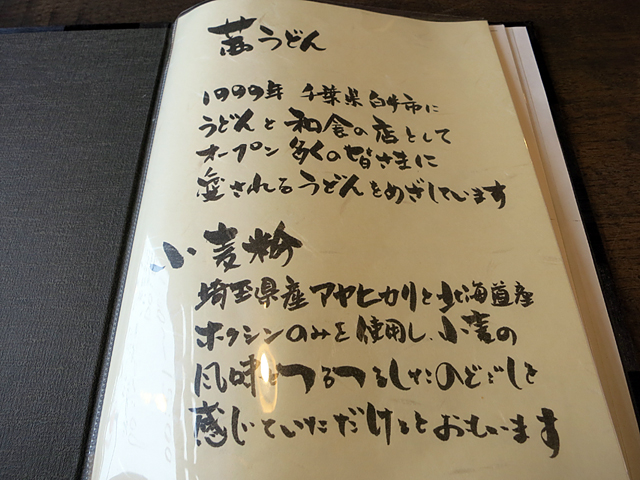 茜うどん
1999年 千葉県白井市に
うどんと和食の店として
オープン 多くの皆さまに
愛されるうどんをめざしています
小麦粉
埼玉県産アヤヒカリと北海道産
ホクシンのみを使用し、小麦の
風味とつるつるしたのどごしを
感じていただけるとおもいます